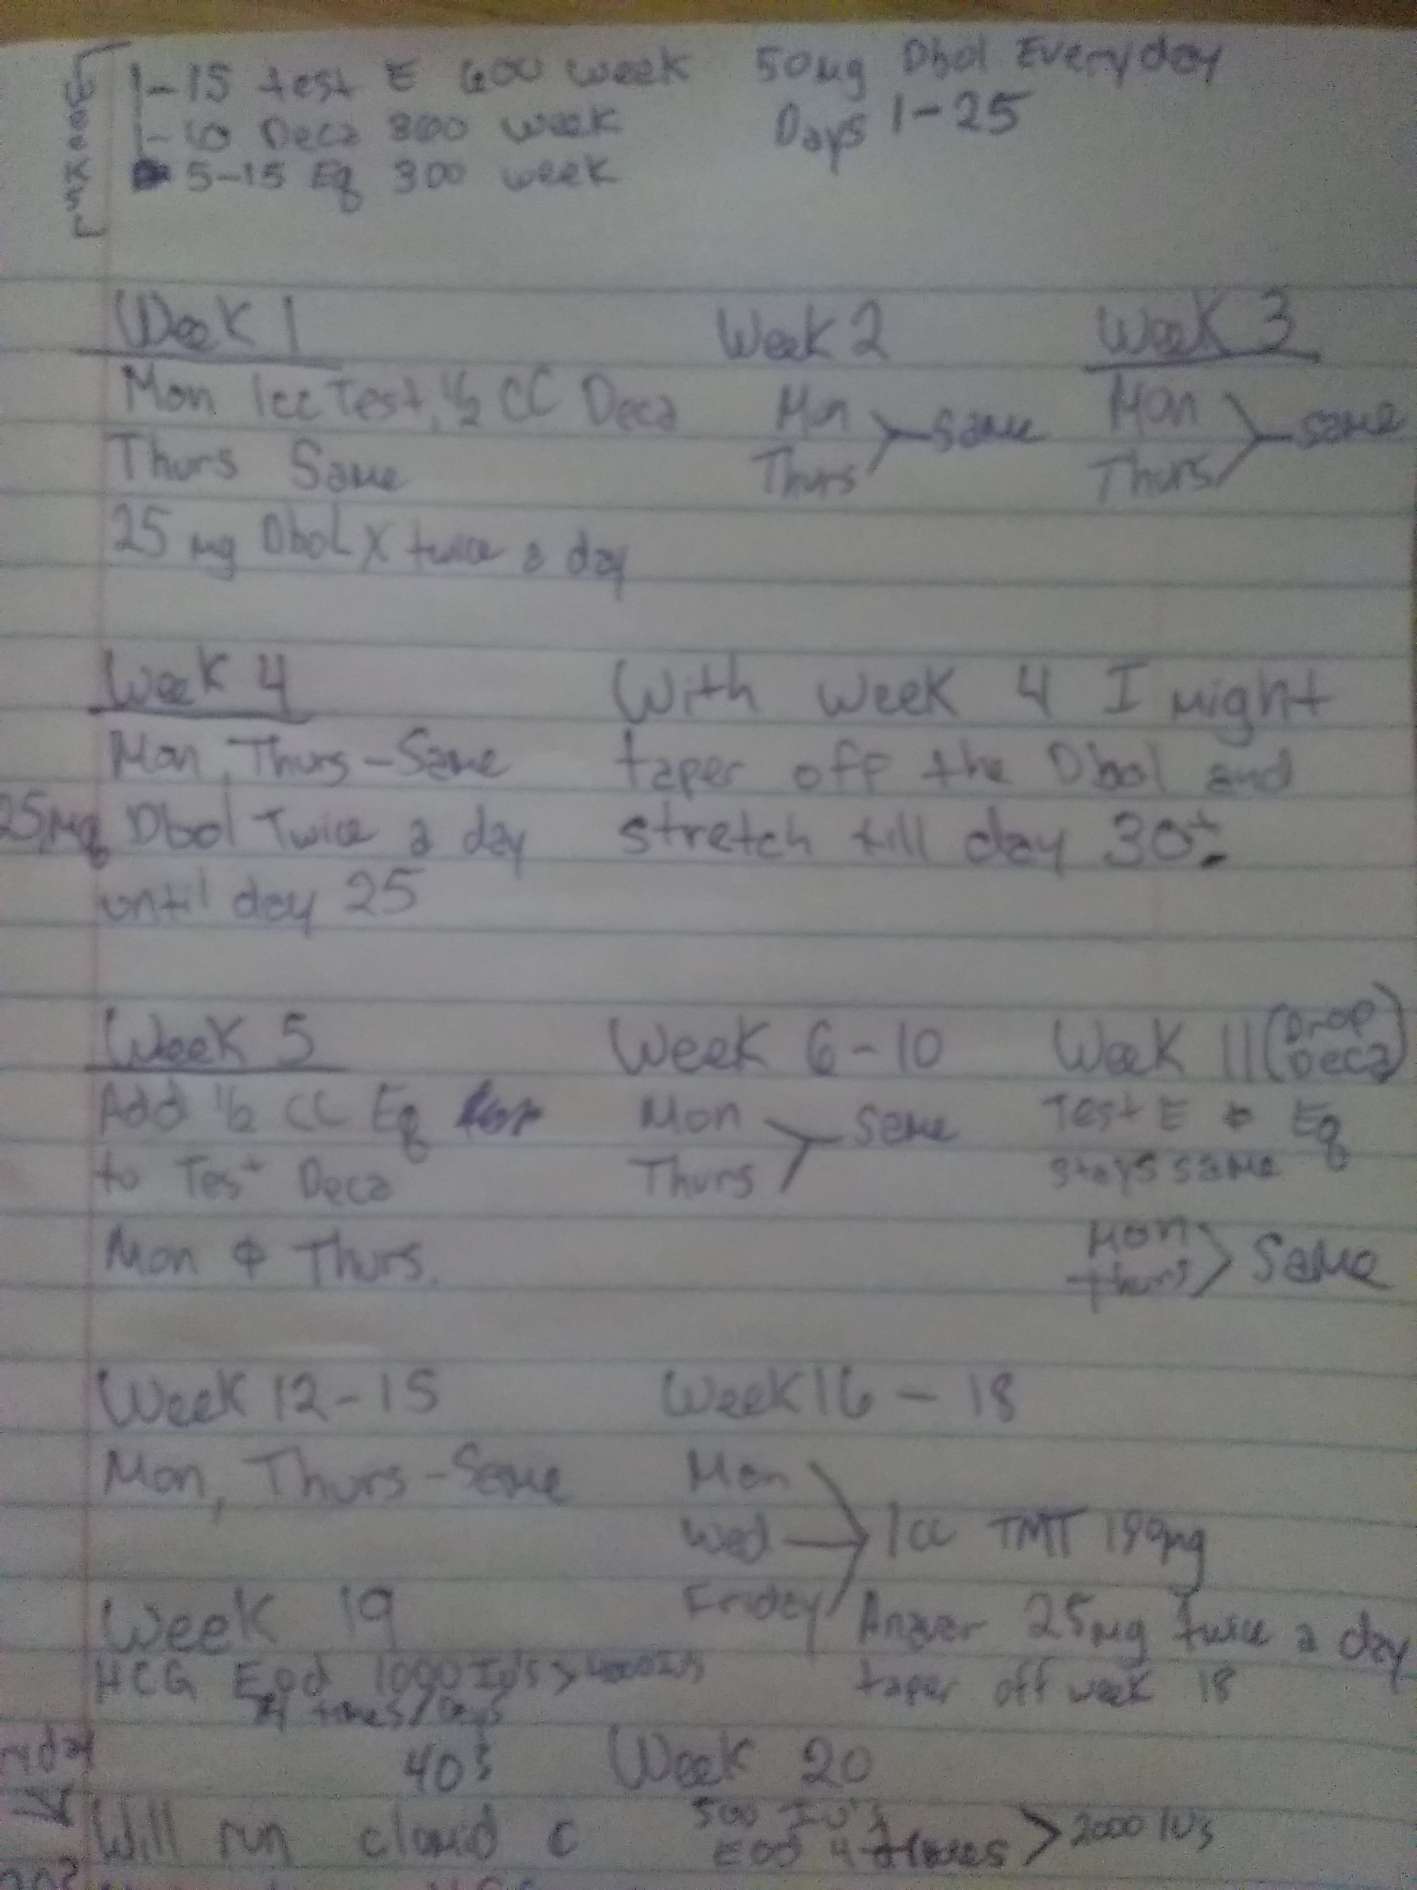 Weeks
1-15 test E 600 week    50mg Dbol Everyday
1-10 Deca 300 week    Days 1-25
5-15 Eq 300 week
Week 1
Mon 1cc Test, 1/2 CC Deca
Thurs Same
25 mg Dbol X twice a day
Week 2
Mon
Thurs > same
Week 3
Mon
Thurs > same
Week 4
Mon, Thurs - Same
25mg Dbol Twice a day
until day 25
With week 4 I might
taper off the Dbol and
stretch till day 30
Week 5
Add 1/2 CC Eq
to Test Deca
Mon & Thurs.
Week 6-10
Mon
Thurs > same
Week 11 (Drop Deca)
Test E & Eq
stays same
Mon
thurs > Same
Week 12-15
Mon, Thurs - Same
Week 16-18
Mon
Wed
Friday
1cc TMT
25mg twice a day
taper off week 18
Week 19
HCG Eod 1000 IU's > 4000 IU's
4 times/
40's
Will run clomid
Week 20
500 IU's
EOD 4 times > 2000 IU's